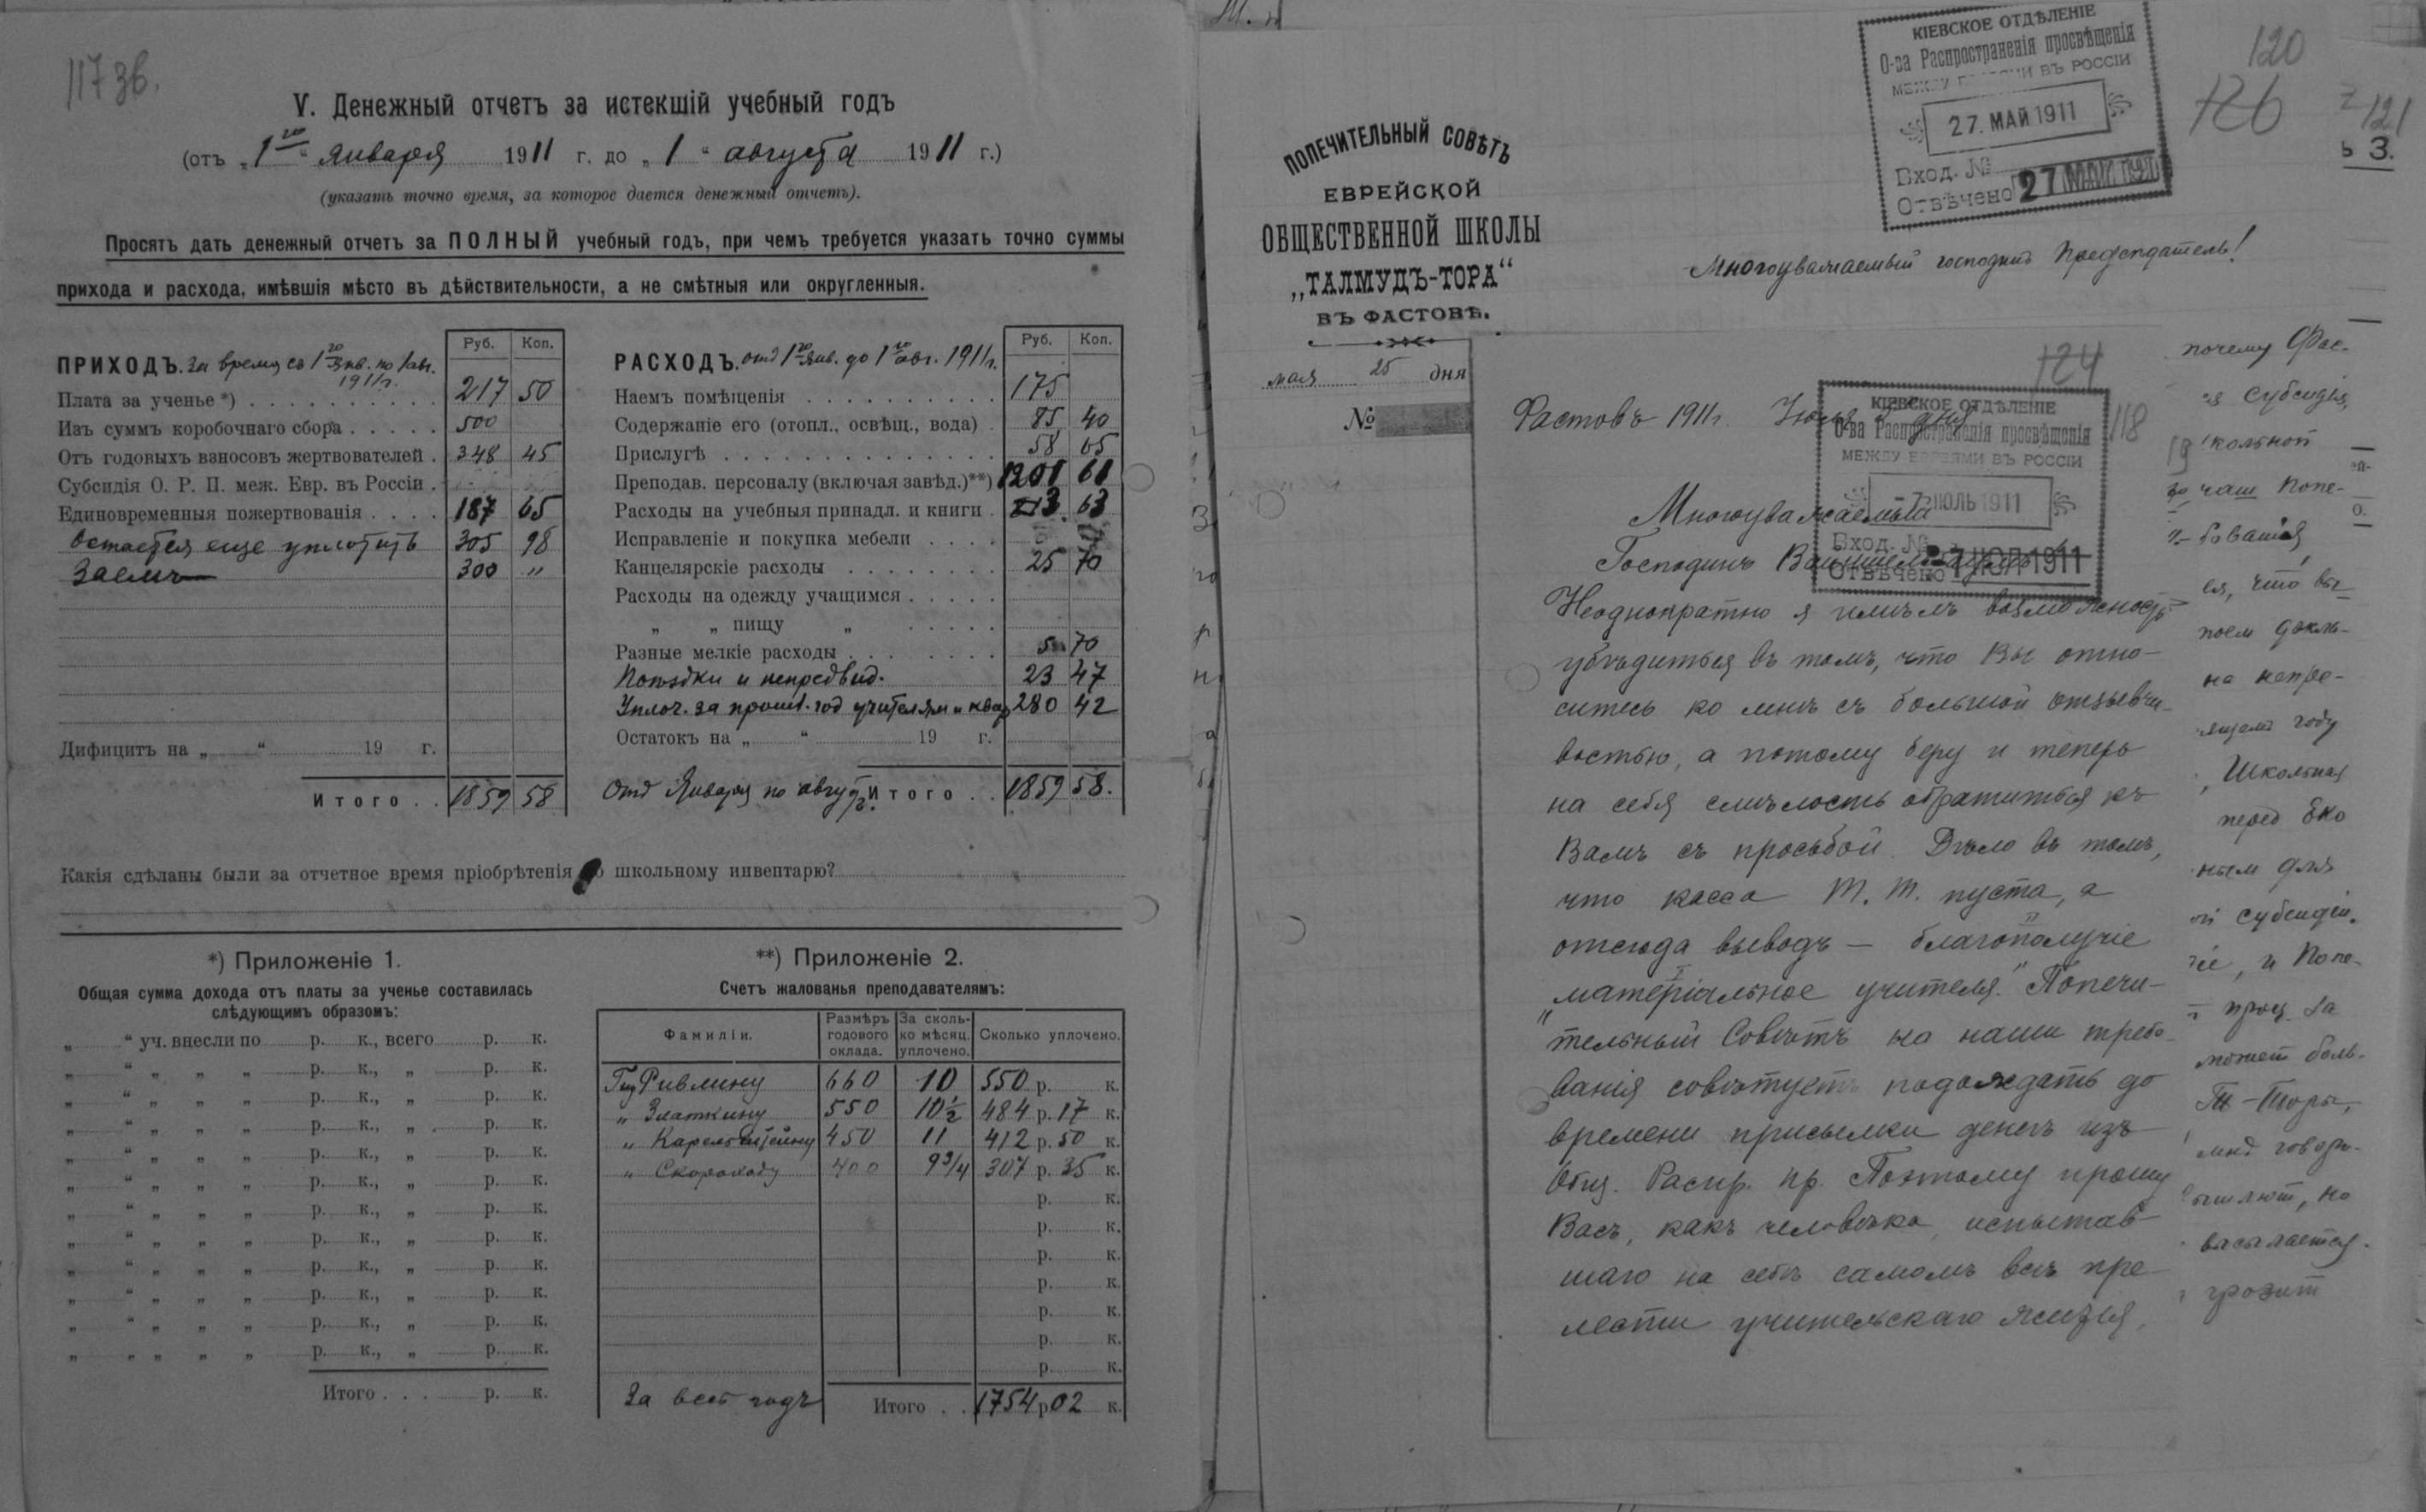 117 зв.
V. Денежный отчетъ за истекшій учебный годъ
(отъ „1го“ января 1911 г. до „1“ августа 1911 г.)
(указать точно время, за которое дается денежный отчетъ).
Просятъ дать денежный отчетъ за ПОЛНЫЙ учебный годъ, при чемъ требуется указать точно суммы
прихода и расхода, имѣвшія мѣсто въ дѣйствительности, а не смѣтныя или округленныя.
ПРИХОДЪ. За время съ 1го янв. по 1 авг. 1911 г. Руб. Коп.
Плата за ученье *) 217 50
Изъ суммъ коробочнаго сбора 500
Отъ годовыхъ взносовъ жертвователей 348 45
Субсидія О. Р. П. меж. Евр. въ Россіи
Единовременныя пожертвованія 187 65
Остается еще уплотить 305 98
Заемъ 300 "
Дифицитъ на „ “ 19 г.
Итого 1859 58
РАСХОДЪ. отъ 1го янв. до 1го авг. 1911 г. Руб. Коп.
Наемъ помѣщенія 175
Содержаніе его (отопл., освѣщ., вода) 85 40
Прислугѣ 58 65
Преподав. персоналу (включая завѣд.) **) 1201 61
Расходы на учебныя принадл. и книги 3 63
Исправленіе и покупка мебели
Канцелярскіе расходы 25 70
Расходы на одежду учащимся
„ „ пищу „
Разные мелкіе расходы 5 70
Поѣздки и непредвид. 23 47
Уплоч. за прошл. год учителям и квар 280 42
Остатокъ на „ “ 19 г.
Отъ Января по август. Итого 1859 58.
Какія сдѣланы были за отчетное время пріобрѣтенія по школьному инвентарю?
*) Приложеніе 1.
Общая сумма дохода отъ платы за ученье составилась
слѣдующимъ образомъ:
„ “ уч. внесли по р. к., всего р. к.
„ “ „ „ „ р. к., „ р. к.
„ “ „ „ „ р. к., „ р. к.
„ “ „ „ „ р. к., „ р. к.
„ “ „ „ „ р. к., „ р. к.
„ “ „ „ „ р. к., „ р. к.
„ “ „ „ „ р. к., „ р. к.
„ “ „ „ „ р. к., „ р. к.
„ “ „ „ „ р. к., „ р. к.
„ “ „ „ „ р. к., „ р. к.
„ “ „ „ „ р. к., „ р. к.
„ “ „ „ „ р. к., „ р. к.
Итого . . . р. к.
**) Приложеніе 2.
Счетъ жалованья преподавателямъ:
Фамиліи. Размѣръ годового оклада. За сколько мѣсяц. уплочено. Сколько уплочено.
Ривлину 660 10 550 р. к.
„ Златкину 550 10½ 484 р. 17 к.
„ Карельштейну 450 11 412 р. 50 к.
„ Скороходу 400 9¾ 307 р. 35 к.
р. к.
р. к.
р. к.
р. к.
р. к.
р. к.
р. к.
За весь годъ Итого . . 1754 р 02 к.
КІЕВСКОЕ ОТДѢЛЕНІЕ
О-ва Распространенія просвѣщенія
МЕЖДУ ЕВРЕЯМИ ВЪ РОССІИ
27. МАЙ 1911
Вход. №
Отвѣчено 27 МАЙ 1911
120
126
121
3.
ПОПЕЧИТЕЛЬНЫЙ СОВѢТЪ
ЕВРЕЙСКОЙ
ОБЩЕСТВЕННОЙ ШКОЛЫ
„ТАЛМУДЪ-ТОРА“
ВЪ ФАСТОВѢ.
мая 25 дня
№
Многоуважаемый господинъ Предсѣдатель!
124
118
КІЕВСКОЕ ОТДѢЛЕНІЕ
О-ва Распространенія просвѣщенія
МЕЖДУ ЕВРЕЯМИ ВЪ РОССІИ
-7 ІЮЛЬ 1911
Вход. №
Отвѣчено -7 ІЮЛ 1911
Фастовъ 1911 г. Іюля 5 дня
Многоуважаемый
Господинъ Вайншельбаумъ!
Неоднократно я имѣлъ возможность
убѣдиться въ томъ, что Вы отно-
ситесь ко мнѣ съ большой отзывчи-
востью, а потому беру и теперь
на себя смѣлость обратиться къ
Вамъ съ просьбой. Дѣло въ томъ,
что касса Т. Т. пуста, а
отсюда выводъ — благополучіе
„матеріальное учителя." Попечи-
тельный Совѣтъ на наши требо-
ванія совѣтуетъ подождать до
времени присылки денегъ изъ
Общ. Распр. пр. Поэтому прошу
Васъ, какъ человѣка, испытав-
шаго на себѣ самомъ всѣ пре-
лести учительскаго житья,
почему Фас-
субсидія,
школьной
чаш Попе-
бованія
ся, что вы-
поем
на непре-
ящемъ году
Школьная
перед Еко
ным для
субсидіи.
и Попе-
проц. за
может боль-
Т-Торы,
говори-
вышлют, но
высылается.
грозит